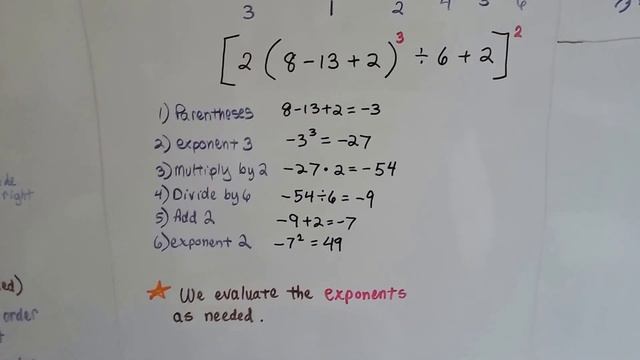 3 1 2 4 5 6
[2(8-13+2)³÷6+2]²
1) Parentheses 8-13+2=-3
2) exponent 3 -3³=-27
3) multiply by 2 -27·2=-54
4) Divide by 6 -54÷6=-9
5) Add 2 -9+2=-7
6) exponent 2 -7²=49
right
☆ We evaluate the exponents
as needed.
ed)
order